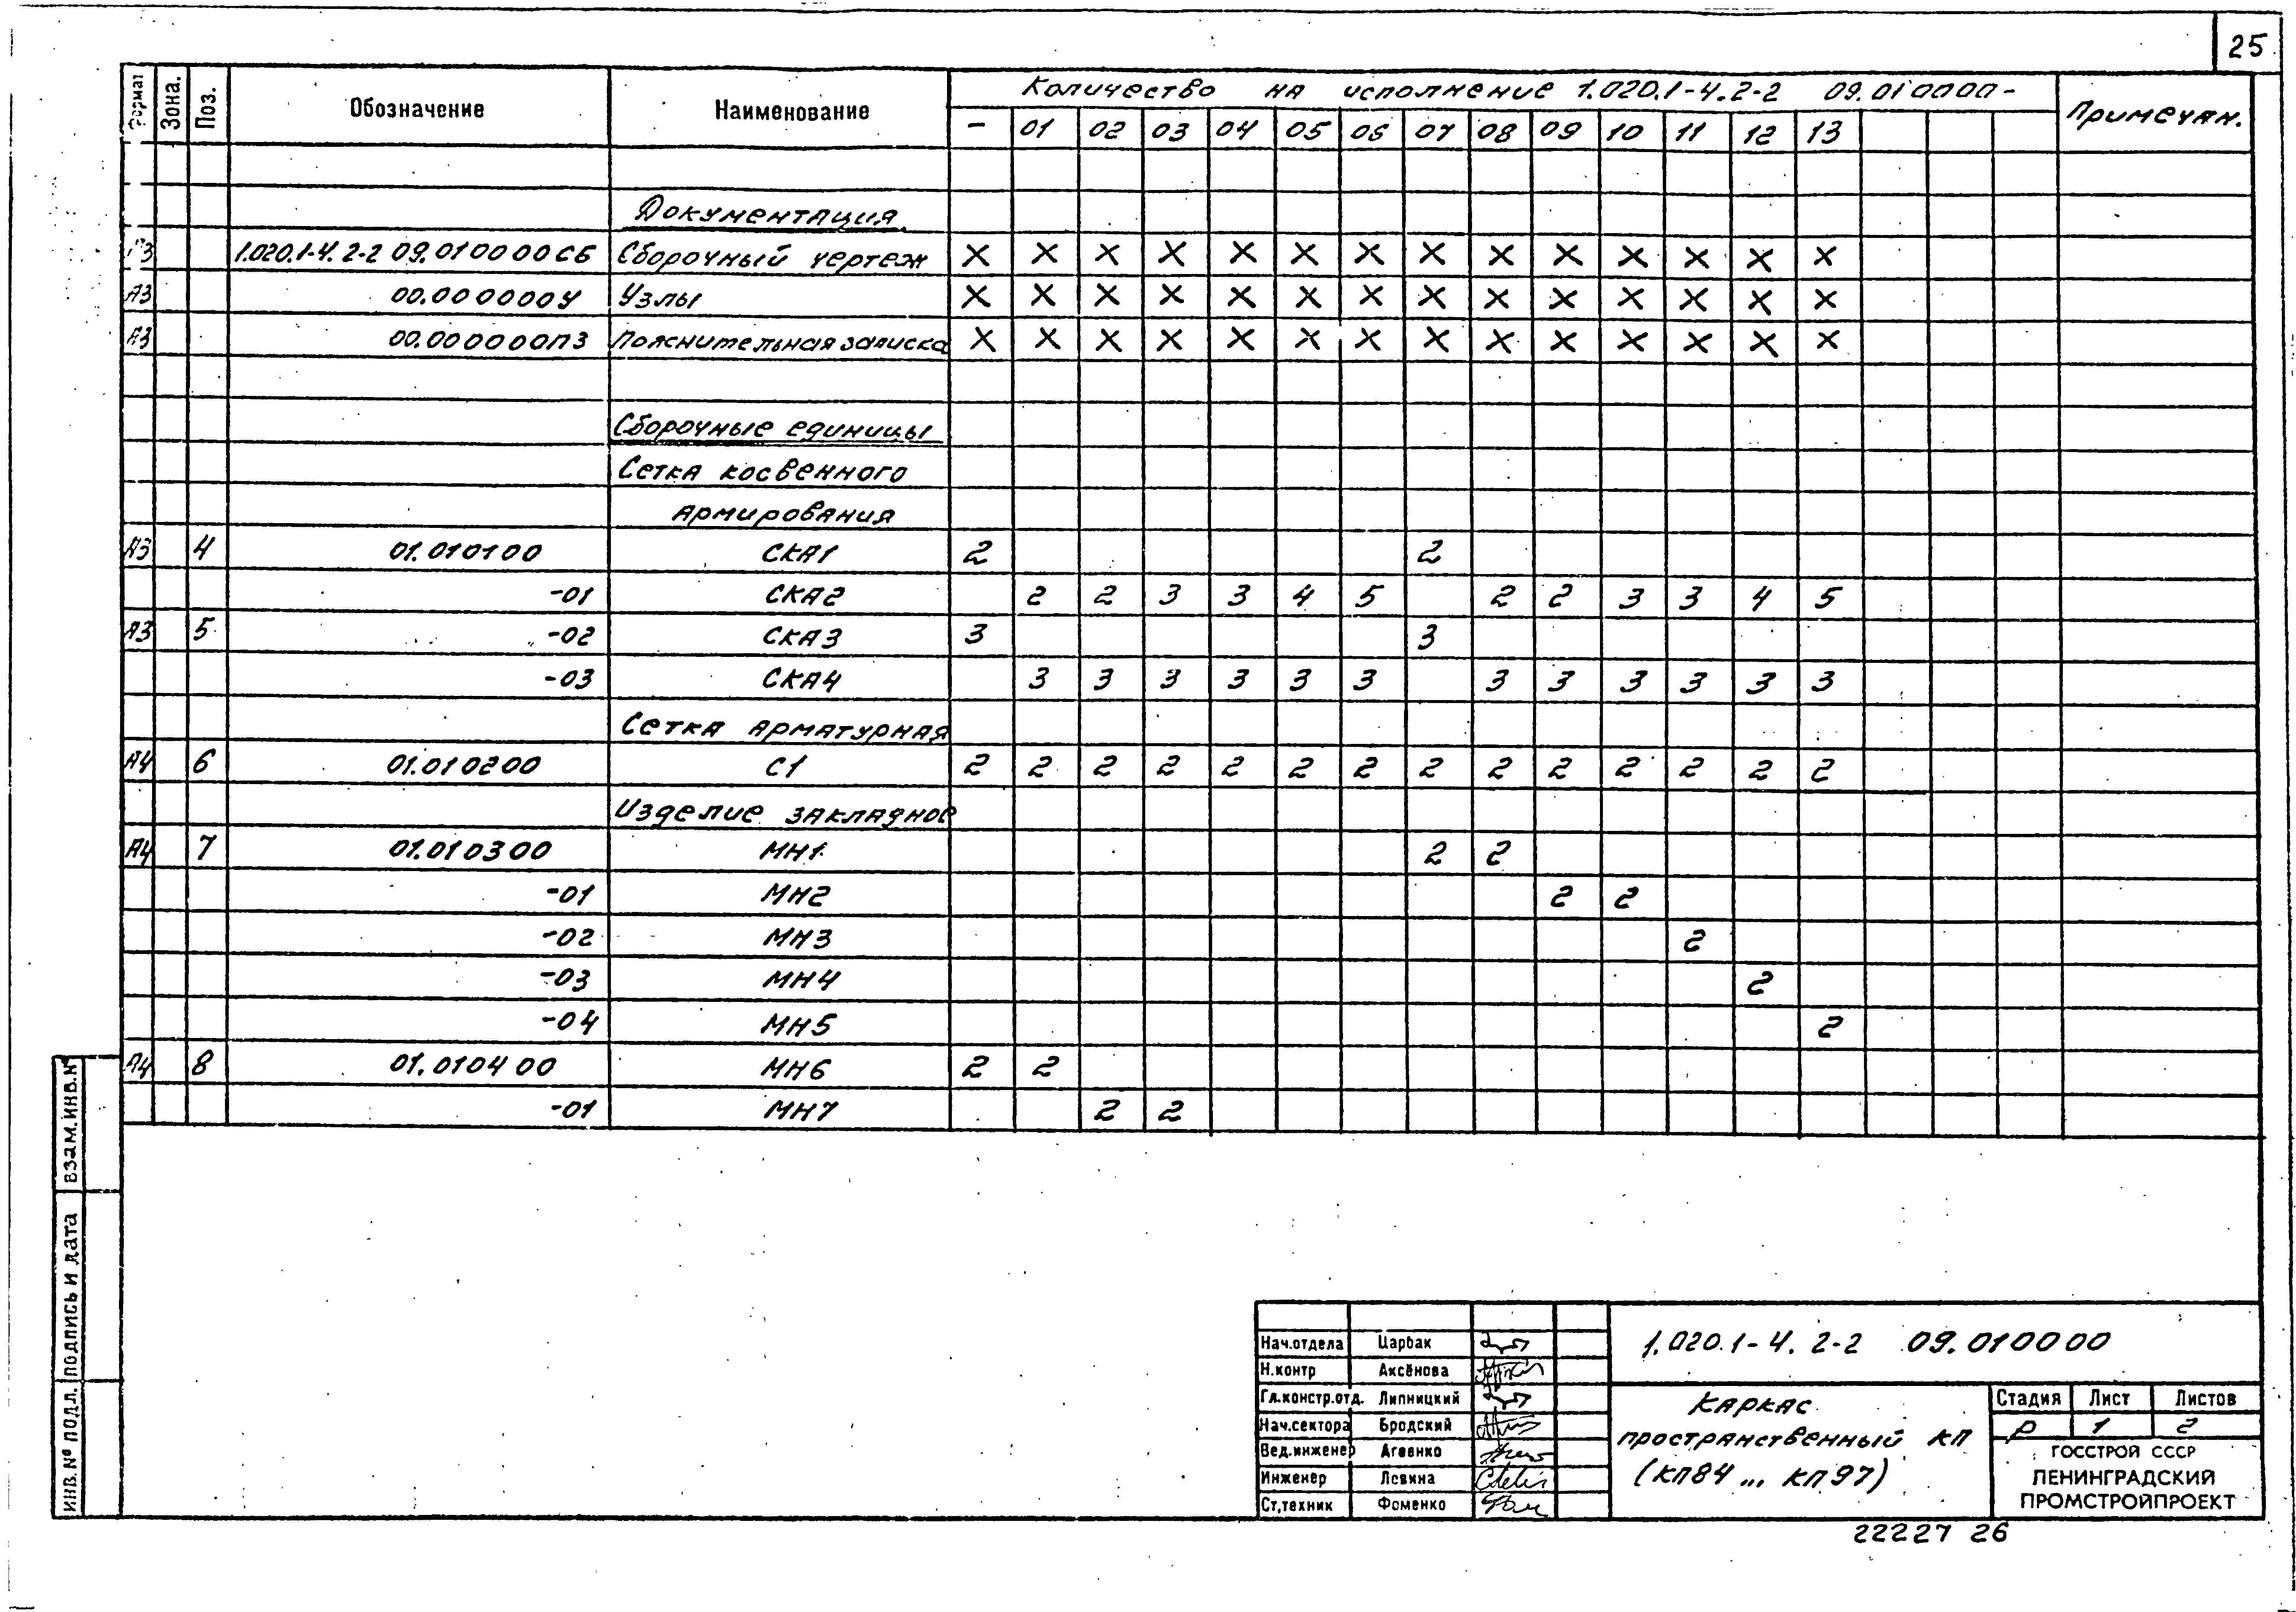 25
Формат Зона. Поз. Обозначение Наименование Количество на исполнение 1.020.1-4.2-2 09.010000- Примечан.
- 01 02 03 04 05 06 07 08 09 10 11 12 13
Документация
А3 1.020.1-4.2-2 09.010000СБ Сборочный чертеж X X X X X X X X X X X X X X
А3 00.000000У Узлы X X X X X X X X X X X X X X
А3 00.000000ПЗ Пояснительная записка X X X X X X X X X X X X X X
Сборочные единицы
Сетка косвенного
армирования
А3 4 01.010100 СКА1 2 2
-01 СКА2 2 2 3 3 4 5 2 2 3 3 4 5
А3 5 -02 СКА3 3 3
-03 СКА4 3 3 3 3 3 3 3 3 3 3 3 3
Сетка арматурная
А4 6 01.010200 С1 2 2 2 2 2 2 2 2 2 2 2 2 2 2
Изделие закладное
А4 7 01.010300 МН1 2 2
-01 МН2 2 2
-02 МН3 2
-03 МН4 2
-04 МН5 2
А4 8 01.010400 МН6 2 2
-01 МН7 2 2
ИНВ.№ ПОДЛ. ПОДПИСЬ И ДАТА ВЗАМ.ИНВ.№
Нач.отдела Царбак
Н.контр Аксёнова
Гл.констр.отд. Липницкий
Нач.сектора Бродский
Вед.инженер Агеенко
Инженер Левина
Ст.техник Фоменко
1.020.1-4. 2-2 09.010000
Каркас
пространственный КП
(КП84 ... КП97)
Стадия Лист Листов
Р 1 2
ГОССТРОЙ СССР
ЛЕНИНГРАДСКИЙ
ПРОМСТРОЙПРОЕКТ
22227 26